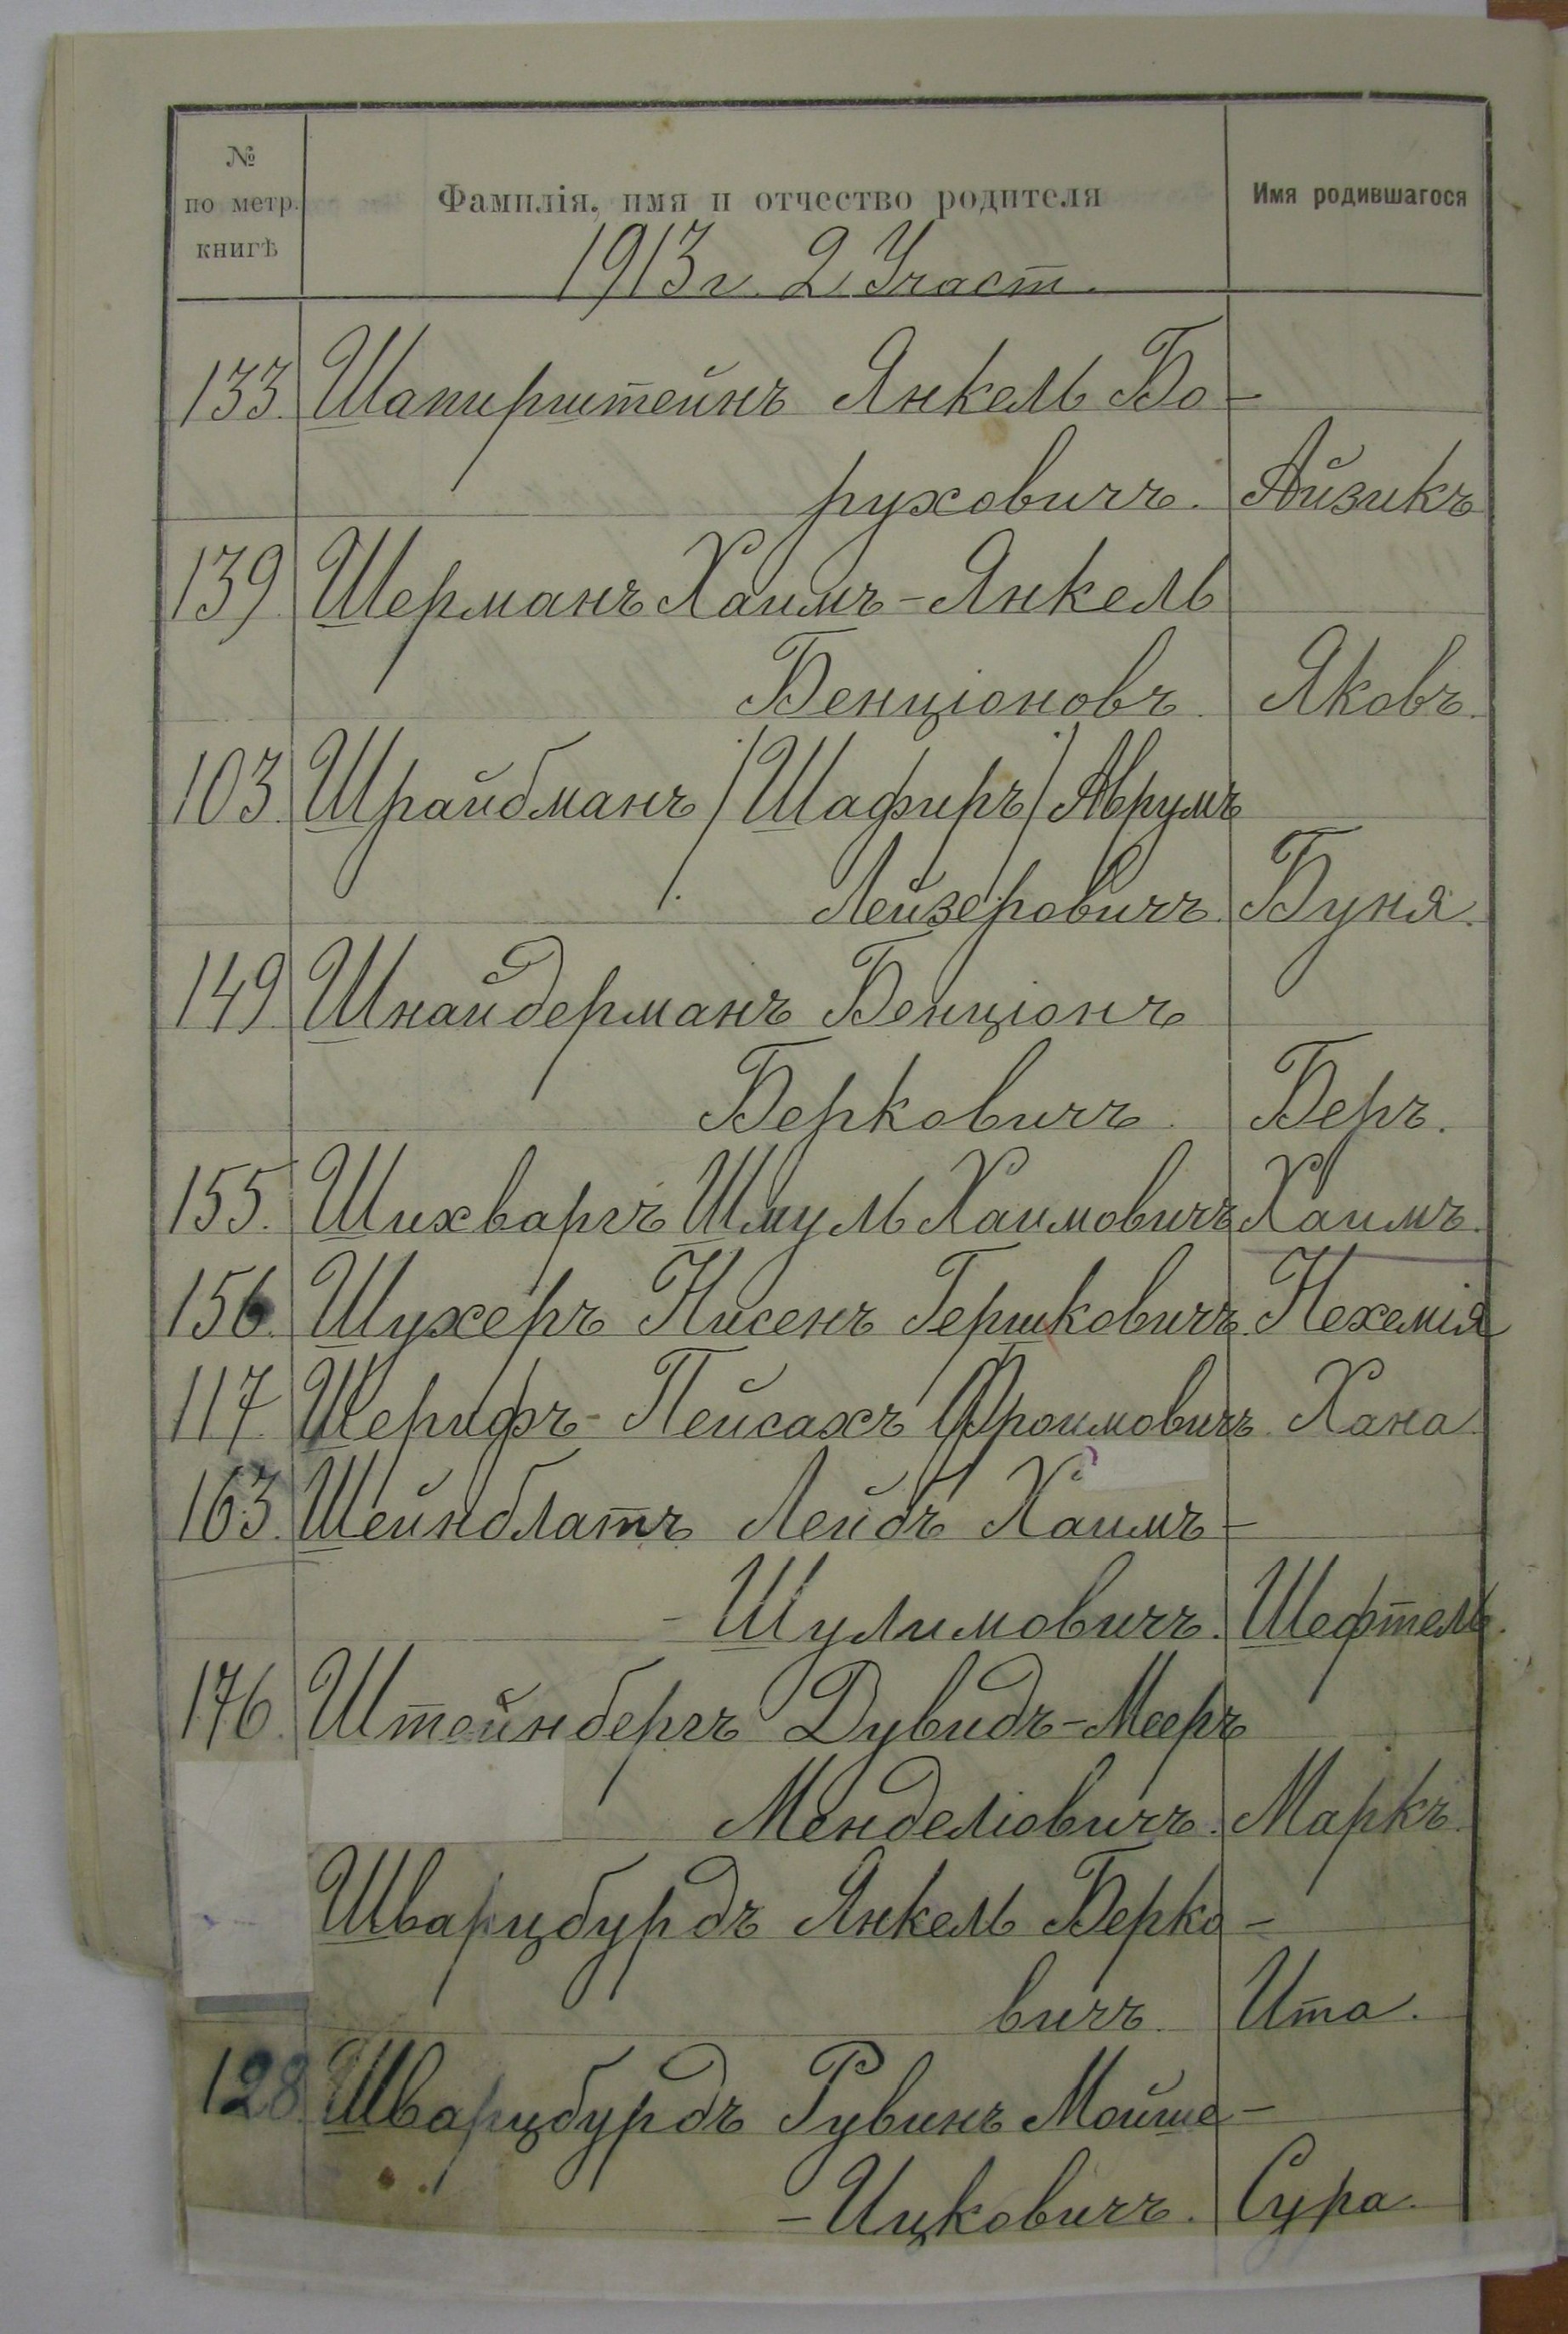 № по метр. книгѣ
Фамилія, имя и отчество родителя
Имя родившагося
1913 г. 2 Участ.
133. Шапирштейнъ Янкель Бо-
руховичъ. Айзикъ
139 Шерманъ Хаимъ-Янкель
Бенціоновъ. Яковъ.
103 Шрайбманъ /Шафиръ/ Аврумъ
Лейзеровичъ. Буня.
149 Шнайдерманъ Бенціонъ
Берковичъ. Беръ.
155. Шихваргъ Шмуль Хаимовичъ Хаимъ.
156. Шухеръ Нисенъ Гершковичъ. Нехемія
117. Шерифъ - Пейсахъ Фроимовичъ. Хана.
163. Шейнблатъ Лейбъ Хаимъ-
-Шулимовичъ. Шефтель.
176. Штейнбергъ Дувидъ-Мееръ
Менделіовичъ. Маркъ.
Шварцбурдъ Янкель Берко-
вичъ. Ита.
128. Шварцбурдъ Рувинъ Мойше-
-Ицковичъ. Сура.